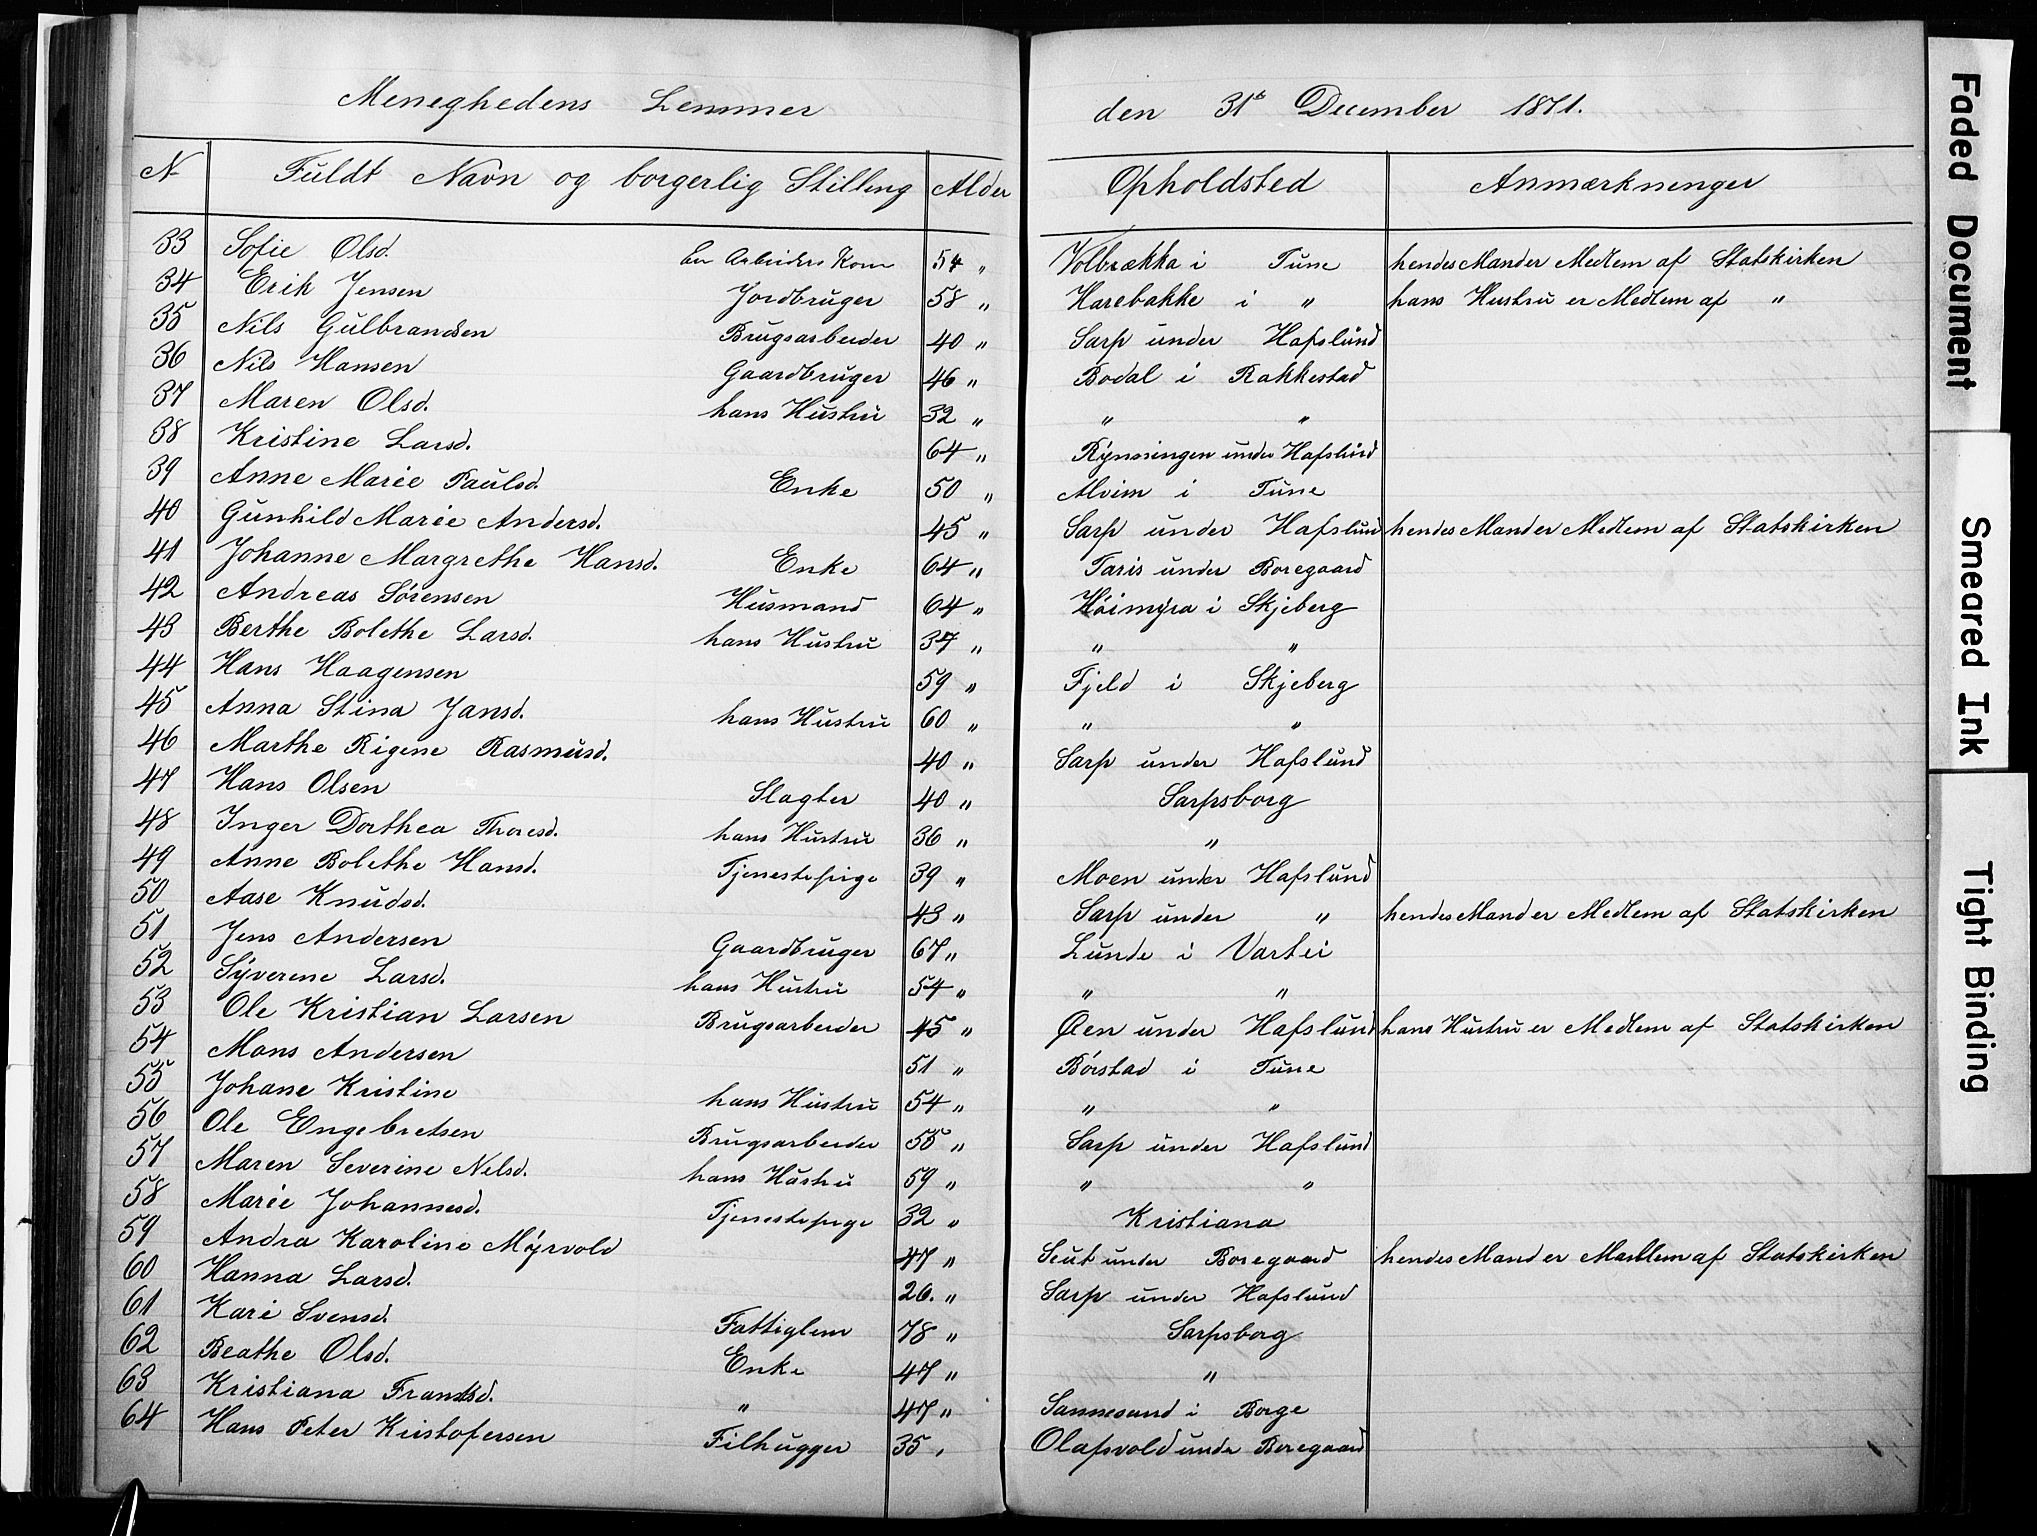 Meneghedens Lemmer den 31te December 1871.
N Fuldt Navn og borgerlig Stilling Alder Opholdsted Anmærkninger
33 Sofie Olsd. en Arbeiders Kone 54 " Volbrækka i Tune hendes Mand er Medlem af Statskirken
34 Erik Jensen Jordbruger 58 " Harebakke i " hans Hustru er Medlem af "
35 Nils Gulbrandsen Brugsarbeider 40 " Sarp under Hafslund
36 Nils Hansen Gaardbruger 46 " Bodal i Rakkestad
37 Maren Olsd. hans Hustru 32 " " "
38 Kristine Larsd. 64 " Rynningen under Hafslund
39 Anne Marie Paulsd. Enke 50 " Alvim i Tune
40 Gunhild Marie Andersd. 45 " Sarp under Hafslund hendes Mand er Medlem af Statskirken
41 Johanne Margrethe Hansd. Enke 64 " Taris under Boregaard
42 Andreas Sørensen Husmand 64 " Høimyra i Skjeberg
43 Berthe Bolethe Larsd. hans Hustru 37 " " "
44 Hans Haagensen 59 " Fjeld i Skjeberg
45 Anna Stina Jansd. hans Hustru 60 " " "
46 Marthe Rigene Rasmusd. 40 " Sarp under Hafslund
47 Hans Olsen Slagter 40 " Sarpsborg
48 Inger Dorthea Thoresd. hans Hustru 36 " "
49 Anne Bolethe Hansd. Tjenestepige 39 " Moen under Hafslund
50 Aase Knudsd. 43 " Sarp under " hendes Mand er Medlem af Statskirken
51 Jens Andersen Gaardbruger 67 " Lunde i Vartei
52 Syverene Larsd. hans Hustru 54 " " "
53 Ole Kristian Larsen Brugsarbeider 45 " Øen under Hafslund hans Hustru er Medlem af Statskirken
54 Mons Andersen 51 " Børstad i Tune
55 Johane Kristine hans Hustru 54 " " "
56 Ole Engebretsen Brugsarbeider 55 " Sarp under Hafslund
57 Maren Severine Nelsd. hans Hustru 59 " " "
58 Marie Johannesd. Tjenestepige 32 " Kristiana
59 Andra Karoline Myrvold 47 " Scut under Boregaard hendes Mand er Medlem af Statskirken
60 Hanna Larsd. 26. " Sarp under Hafslund
61 Kari Svensd. Fattiglem 78 " Sarpsborg
62 Beathe Olsd. Enke 47 " "
63 Kristiana Frandsd. " 47 " Sannesund i Borge
64 Hans Peter Kristofersen Filhugger 35 " Olafsvold under Boregaard
Faded Document
Smeared Ink
Tight Binding